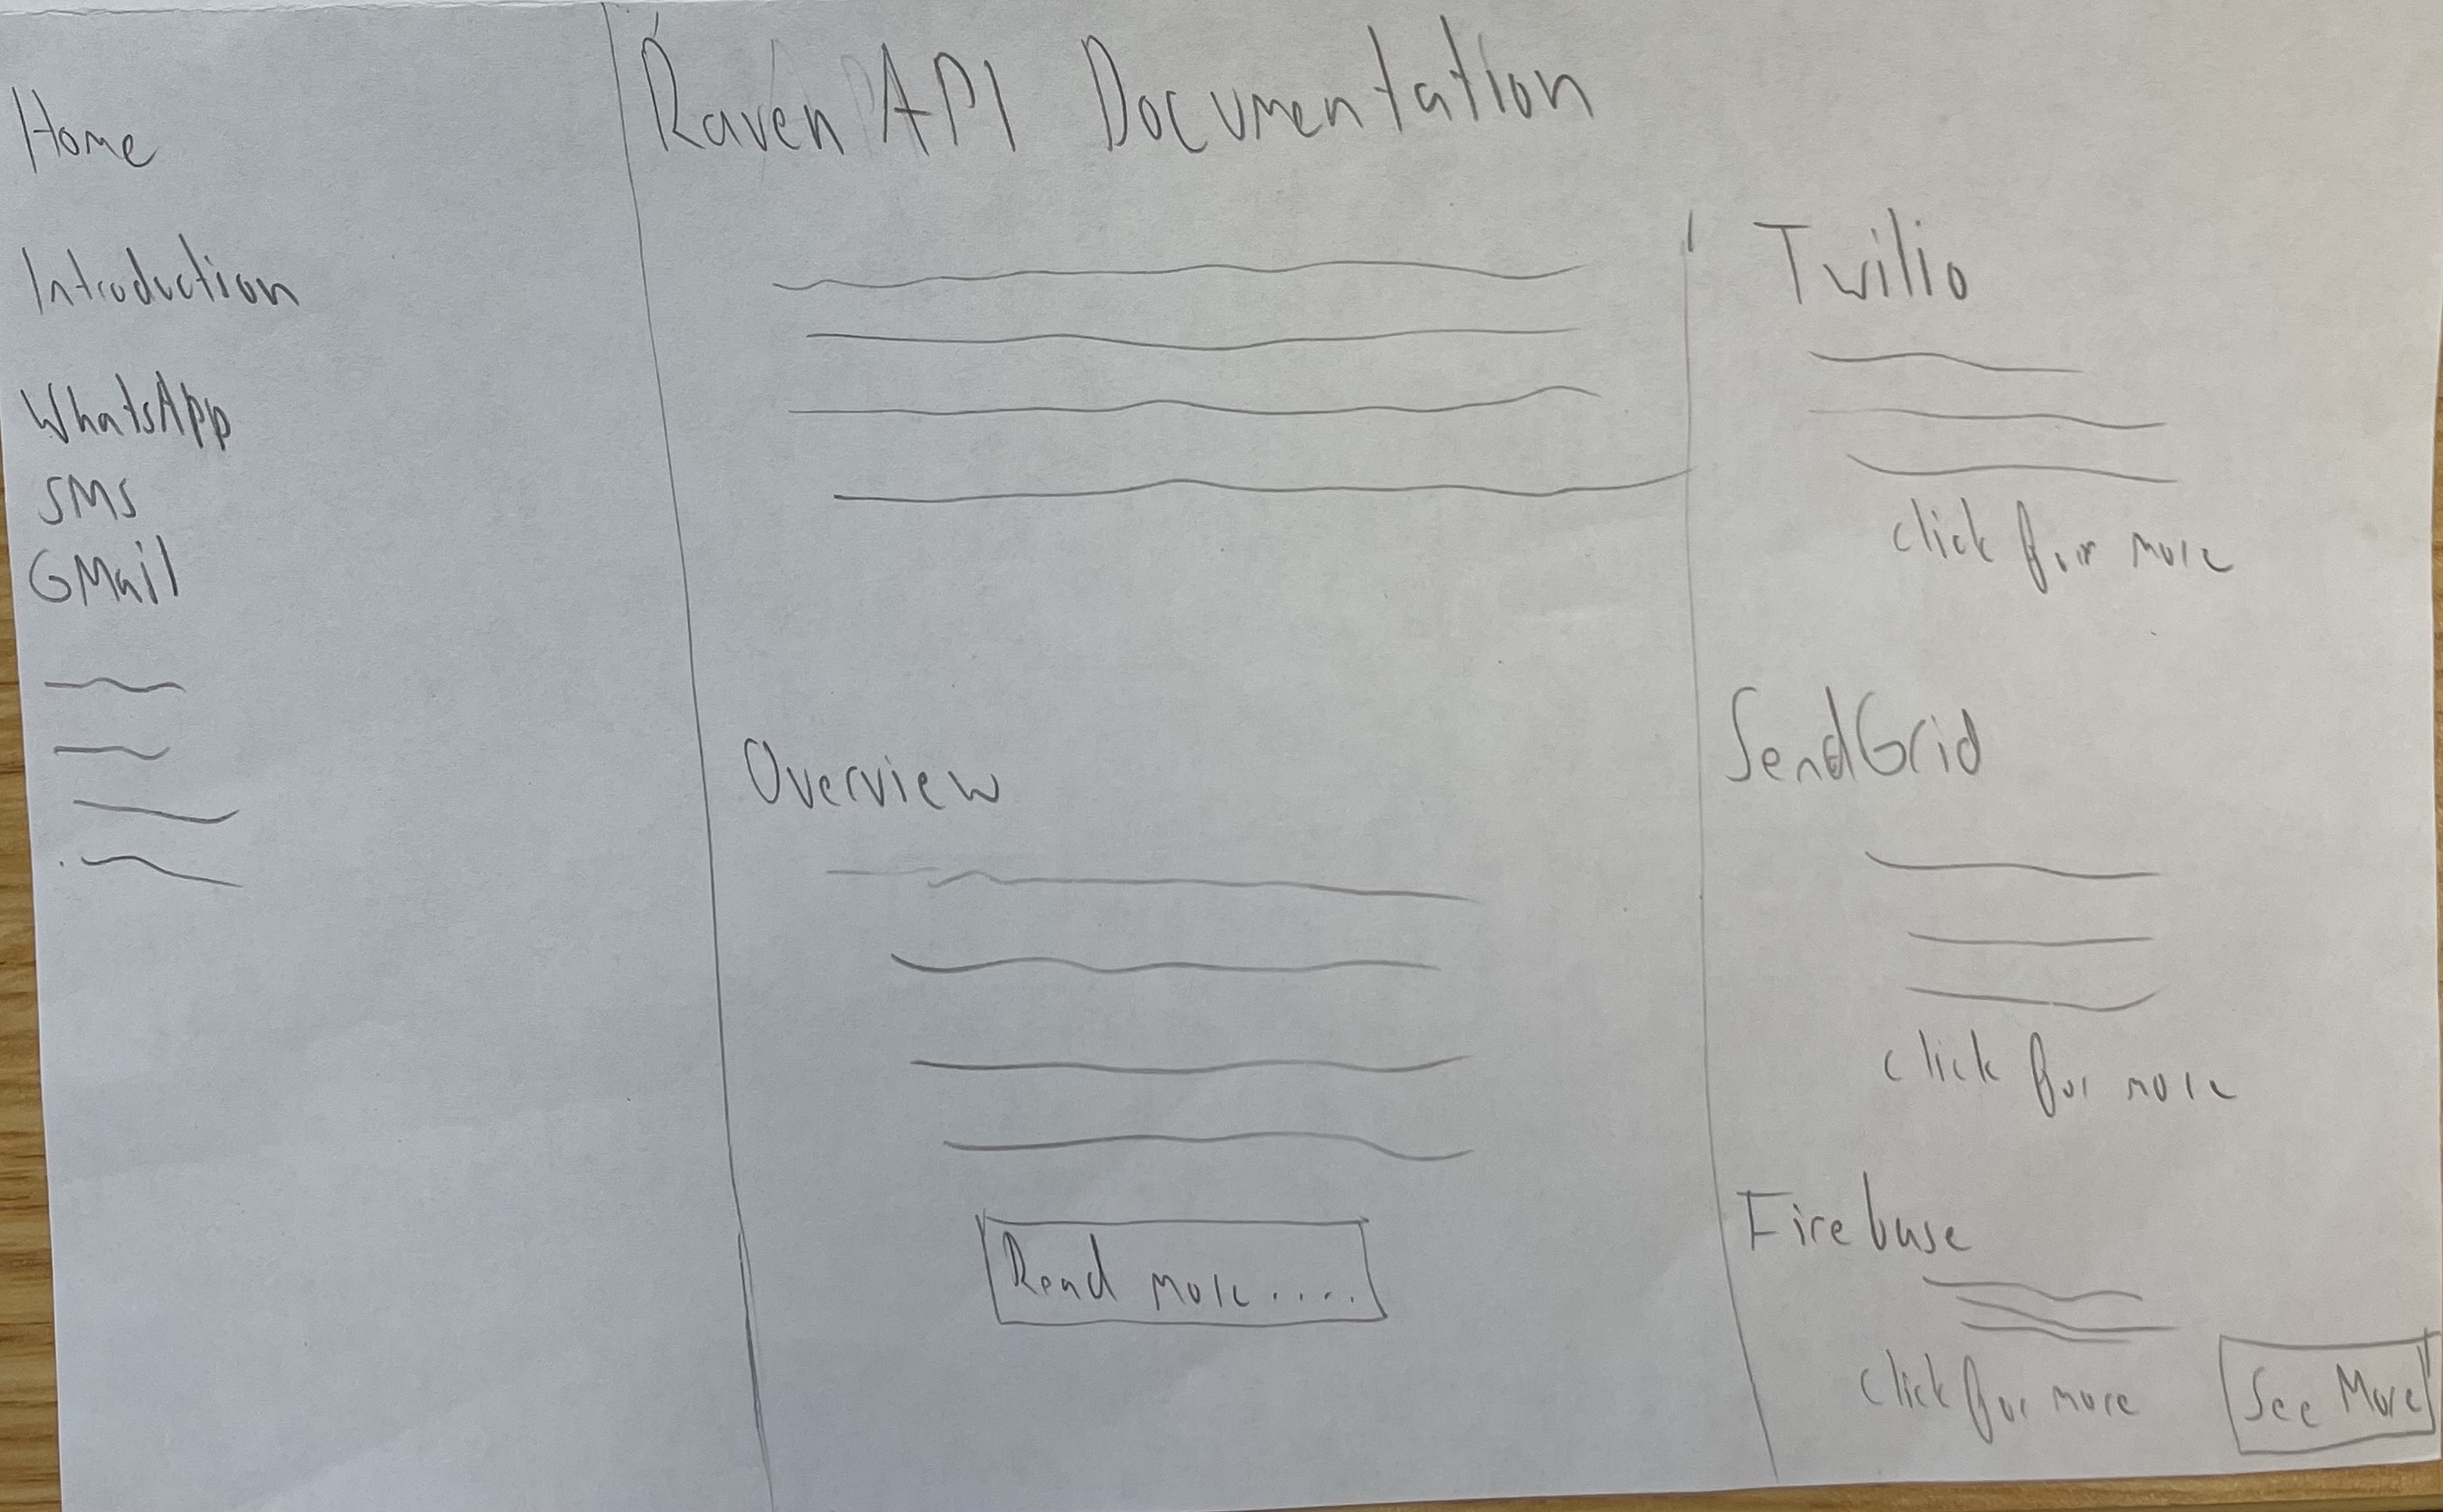 Home
Introduction
WhatsApp
SMS
GMail
Raven API Documentation
Overview
Read more.....
Twilio
click for more
SendGrid
click for more
Firebase
click for more
See More